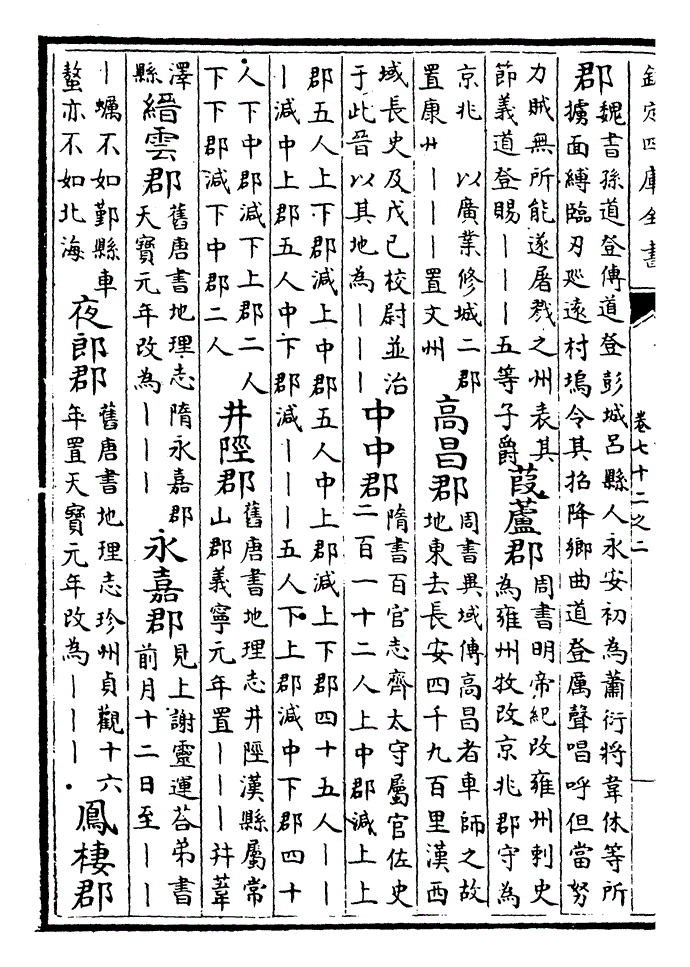 欽定四庫全書
卷七十二之二
郡
魏書孫道登傳道登彭城呂縣人永安初為蕭衍將韋休等所
擄面縛臨刃巡遠村塢令其招降鄉曲道登厲聲唱呼但當努
力賊無所能遂屠戮之州表其
節義道登賜｜｜｜五等子爵
葭蘆郡
周書明帝紀改雍州刺史
為雍州牧改京兆郡守為
京兆　以廣業修城二郡
置康州｜｜｜置文州
高昌郡
周書異域傳高昌者車師之故
地東去長安四千九百里漢西
域長史及戊已校尉並治
于此晉以其地為｜｜｜
中中郡
隋書百官志齊太守屬官佐史
二百一十二人上中郡減上上
郡五人上下郡減上中郡五人中上郡減上下郡四十五人｜｜
｜減中上郡五人中下郡減｜｜｜五人下上郡減中下郡四十
人下中郡減下上郡二人
下下郡減下中郡二人
井陘郡
舊唐書地理志井陘漢縣屬常
山郡義寧元年置｜｜｜幷葦
澤
縣
縉雲郡
舊唐書地理志隋永嘉郡
天寶元年改為｜｜｜
永嘉郡
見上謝靈運荅弟書
前月十二日至｜｜
｜蠣不如鄞縣車
螯亦不如北海
夜郎郡
舊唐書地理志珍州貞觀十六
年置天寶元年改為｜｜｜
鳳棲郡